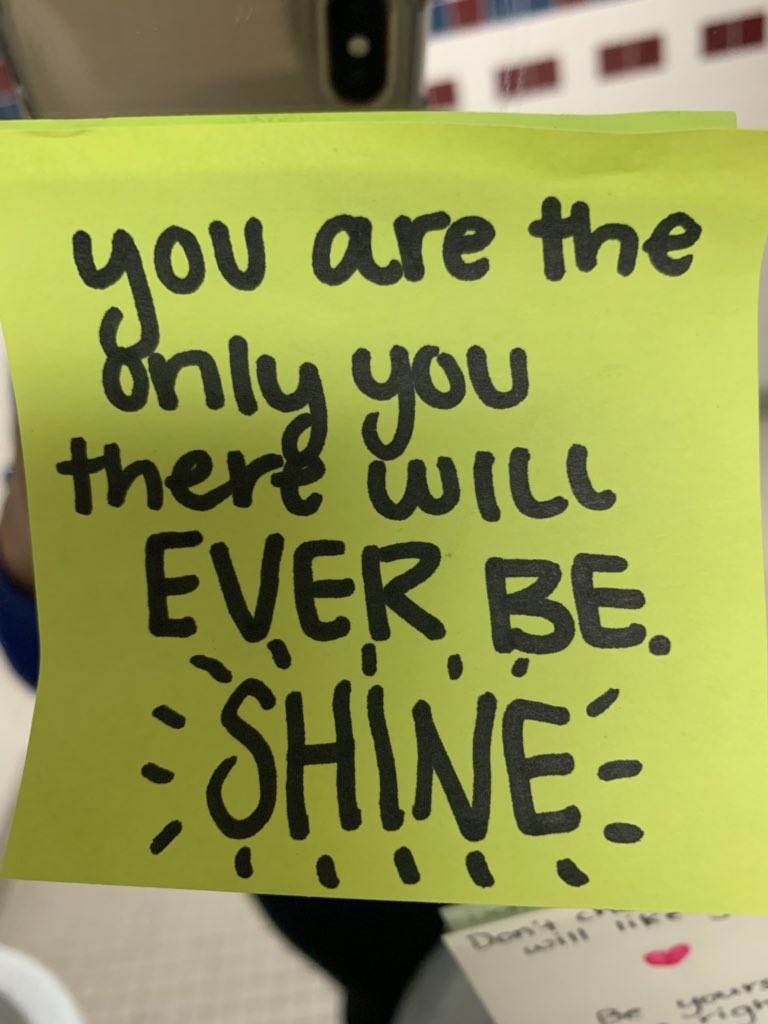 you are the
only you
there will
EVER BE.
SHINE
Don't
will like
Be